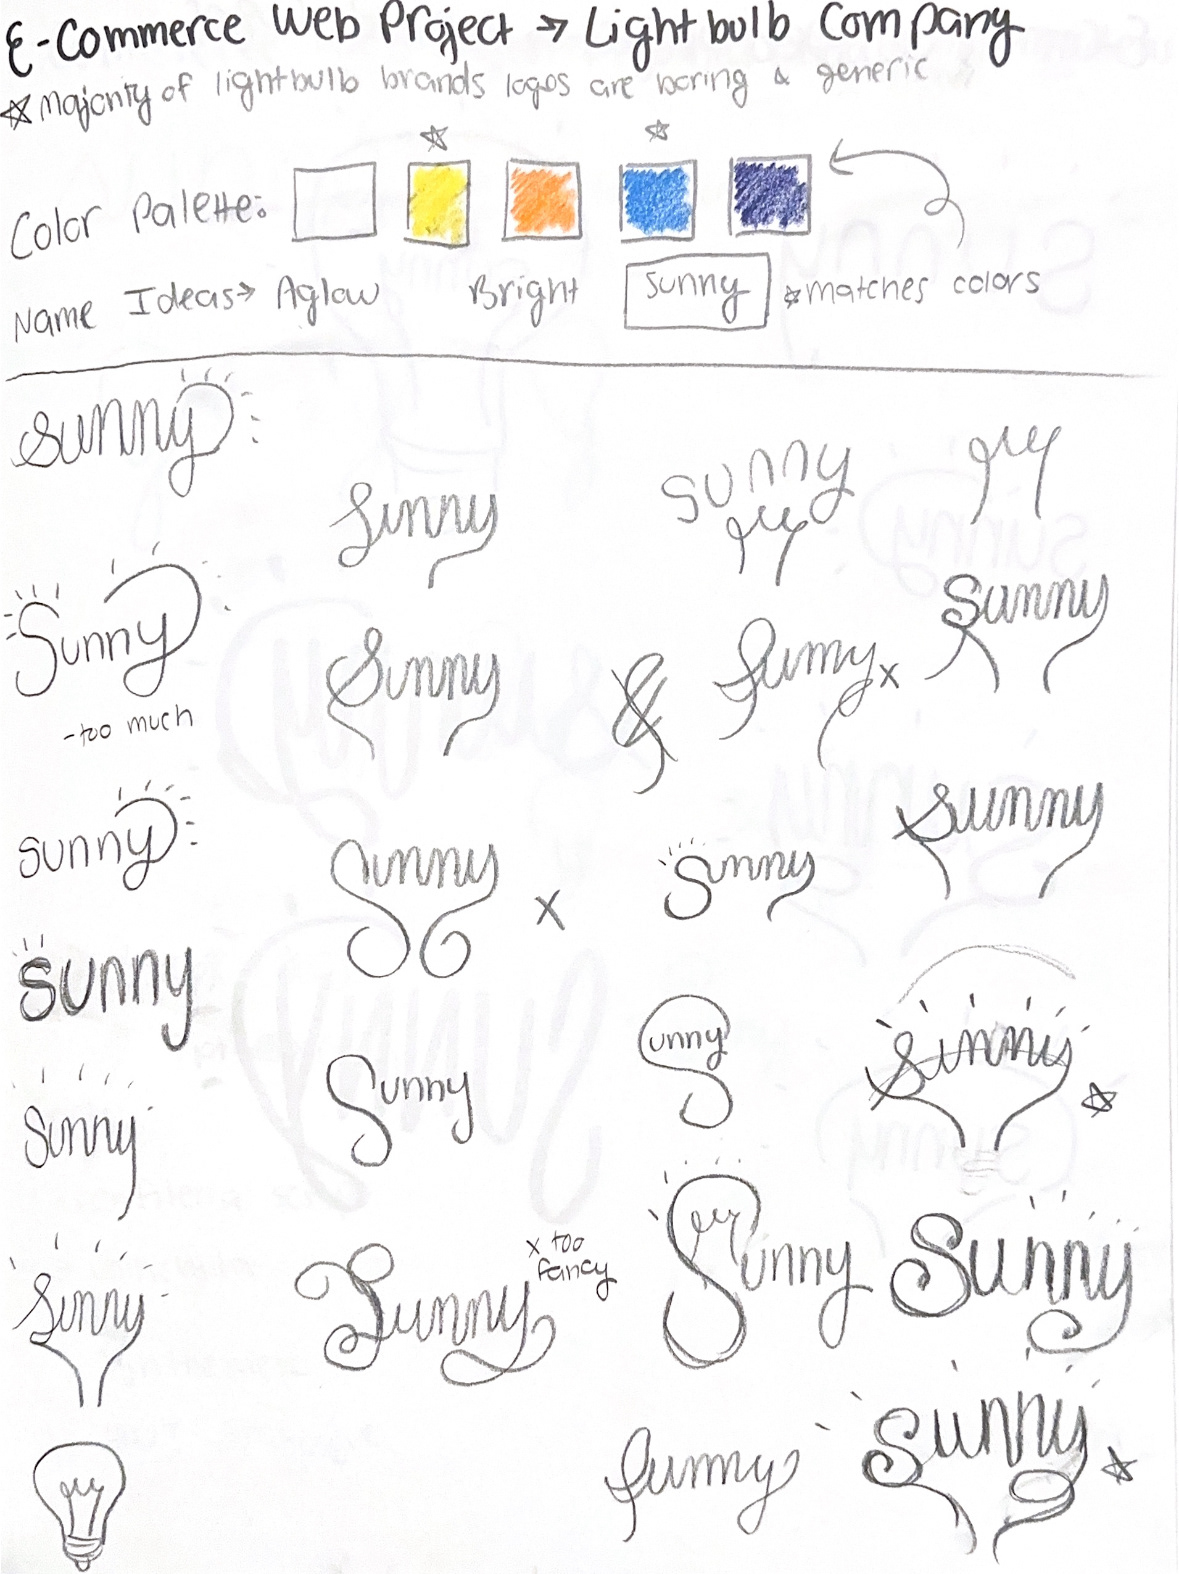 E-Commerce Web Project → Lightbulb Company
☆ Majority of lightbulb brands logos are boring & generic
Color Palette:
Name Ideas → Aglow Bright Sunny ☆matches colors
sunny
Sunny
sunny
Sunny
Sunny
- too much
Sunny
Sunny
x
Sunny
sunny
Sunny
x
Sunny
sunny
unny
Sunny
Sunny
Sunny
Sunny
Sunny
x too
fancy
Sunny
Sunny
Sunny
Sunny
Sunny